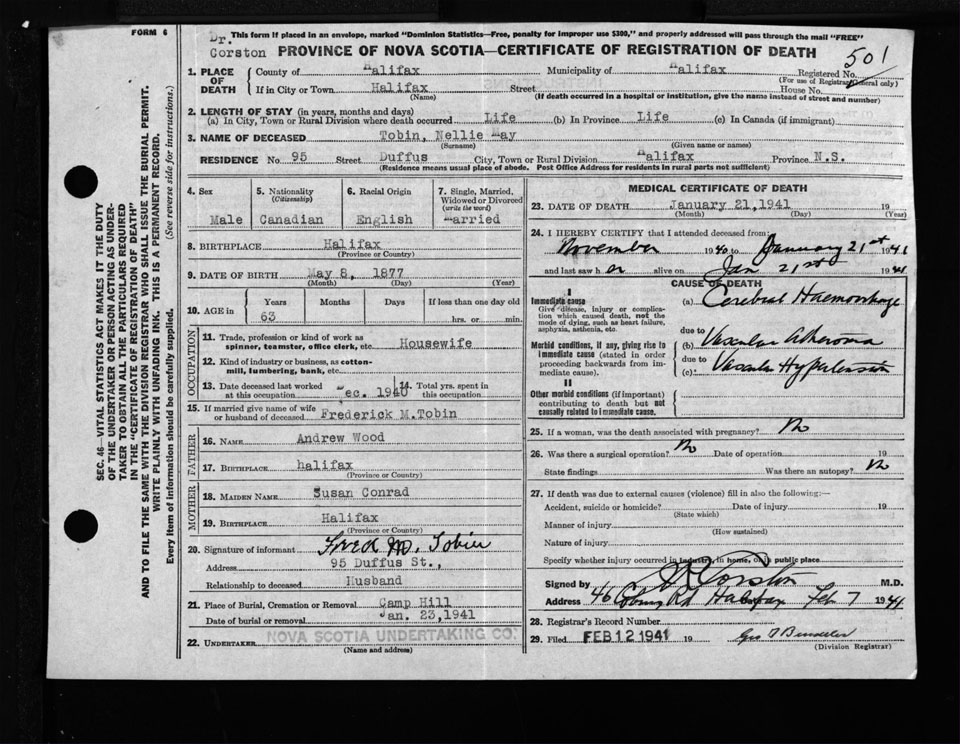 FORM 6
Dr. Corston
This form if placed in an envelope, marked "Dominion Statistics—Free, penalty for improper use $300," and properly addressed will pass through the mail "FREE"
PROVINCE OF NOVA SCOTIA—CERTIFICATE OF REGISTRATION OF DEATH
501
1. PLACE OF DEATH County of Halifax Municipality of Halifax Registered No.
(For use of Registrar General only)
If in City or Town Halifax Street House No.
(Name) (If death occurred in a hospital or institution, give the name instead of street and number)
2. LENGTH OF STAY (in years, months and days)
(a) In City, Town or Rural Division where death occurred Life (b) In Province Life (c) In Canada (if immigrant)
3. NAME OF DECEASED Tobin, Nellie May
(Surname) (Given name or names)
RESIDENCE No 95 Street Duffus City, Town or Rural Division Halifax Province N.S.
(Residence means usual place of abode. Post Office Address for residents in rural parts not sufficient)
4. Sex 5. Nationality 6. Racial Origin 7. Single, Married,
(Citizenship) Widowed or Divorced
(write the word)
Male Canadian English Married
8. BIRTHPLACE Halifax
(Province or Country)
9. DATE OF BIRTH May 8, 1877
(Month) (Day) (Year)
10. AGE in Years Months Days If less than one day old
63 hrs. or min.
OCCUPATION
11. Trade, profession or kind of work as spinner, teamster, office clerk, etc. Housewife
12. Kind of industry or business, as cotton-mill, lumbering, bank, etc.
13. Date deceased last worked at this occupation Dec. 1940 14. Total yrs. spent in this occupation
15. If married give name of wife or husband of deceased Frederick M. Tobin
FATHER
16. NAME Andrew Wood
17. BIRTHPLACE halifax
(Province or Country)
MOTHER
18. MAIDEN NAME Susan Conrad
19. BIRTHPLACE Halifax
(Province or Country)
20. Signature of informant Fred M. Tobin
Address 95 Duffus St.,
Relationship to deceased Husband
21. Place of Burial, Cremation or Removal Camp Hill
Date of burial or removal Jan. 23, 1941
22. UNDERTAKER NOVA SCOTIA UNDERTAKING CO.
(Name and address)
MEDICAL CERTIFICATE OF DEATH
23. DATE OF DEATH January 21, 1941 19
(Month) (Day) (Year)
24. I HEREBY CERTIFY that I attended deceased from:
November 1940 to January 21st 1941
and last saw her alive on Jan 21st 1941
CAUSE OF DEATH
I
Immediate cause (a) Cerebral Haemorrhage
Give disease, injury or complication which caused death, not the mode of dying, such as heart failure, asphyxia, asthenia, etc.
due to
Morbid conditions, if any, giving rise to immediate cause (stated in order proceeding backwards from immediate cause).
(b) Vascular Atheroma
due to
(c) Vascular Hypertension
II
Other morbid conditions (if important) contributing to death but not causally related to immediate cause.
25. If a woman, was the death associated with pregnancy? No
26. Was there a surgical operation? No Date of operation 19
State findings Was there an autopsy? No
27. If death was due to external causes (violence) fill in also the following:—
Accident, suicide or homicide? Date of injury 19
(State which)
Manner of injury
(How sustained)
Nature of injury
Specify whether injury occurred in industry, in home, or in public place
Signed by Corston M.D.
Address 46 Coburg Rd Halifax Feb 7 1941
28. Registrar's Record Number
29. Filed FEB 12 1941 19
(Division Registrar)
SEC. 46—VITAL STATISTICS ACT MAKES IT THE DUTY
OF THE UNDERTAKER OR PERSON ACTING AS UNDER-
TAKER TO OBTAIN ALL THE PARTICULARS REQUIRED
IN THE "CERTIFICATE OF REGISTRATION OF DEATH"
AND TO FILE THE SAME WITH THE DIVISION REGISTRAR WHO SHALL ISSUE THE BURIAL PERMIT.
WRITE PLAINLY WITH UNFADING INK. THIS IS A PERMANENT RECORD.
Every item of information should be carefully supplied. (See reverse side for instructions.)